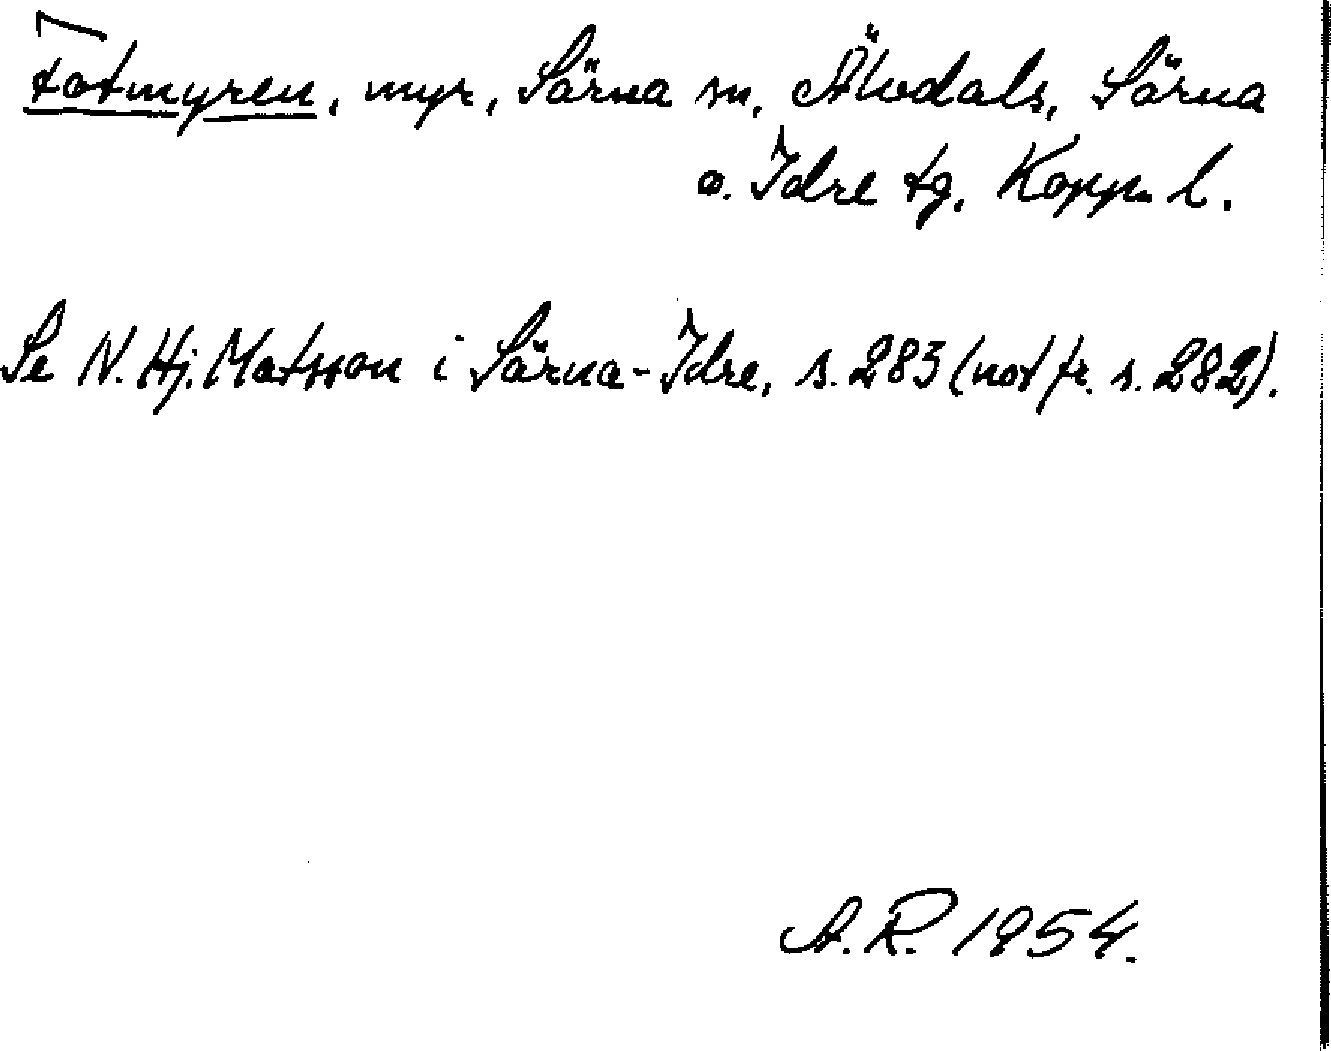 Totmyren, myr, Särna sn, Älvdals, Särna
o. Idre tg, Kopp. l.
Se N. Hj. Matsson i Särna-Idre, s. 283 (not fr. s. 282).
A.R. 1954.